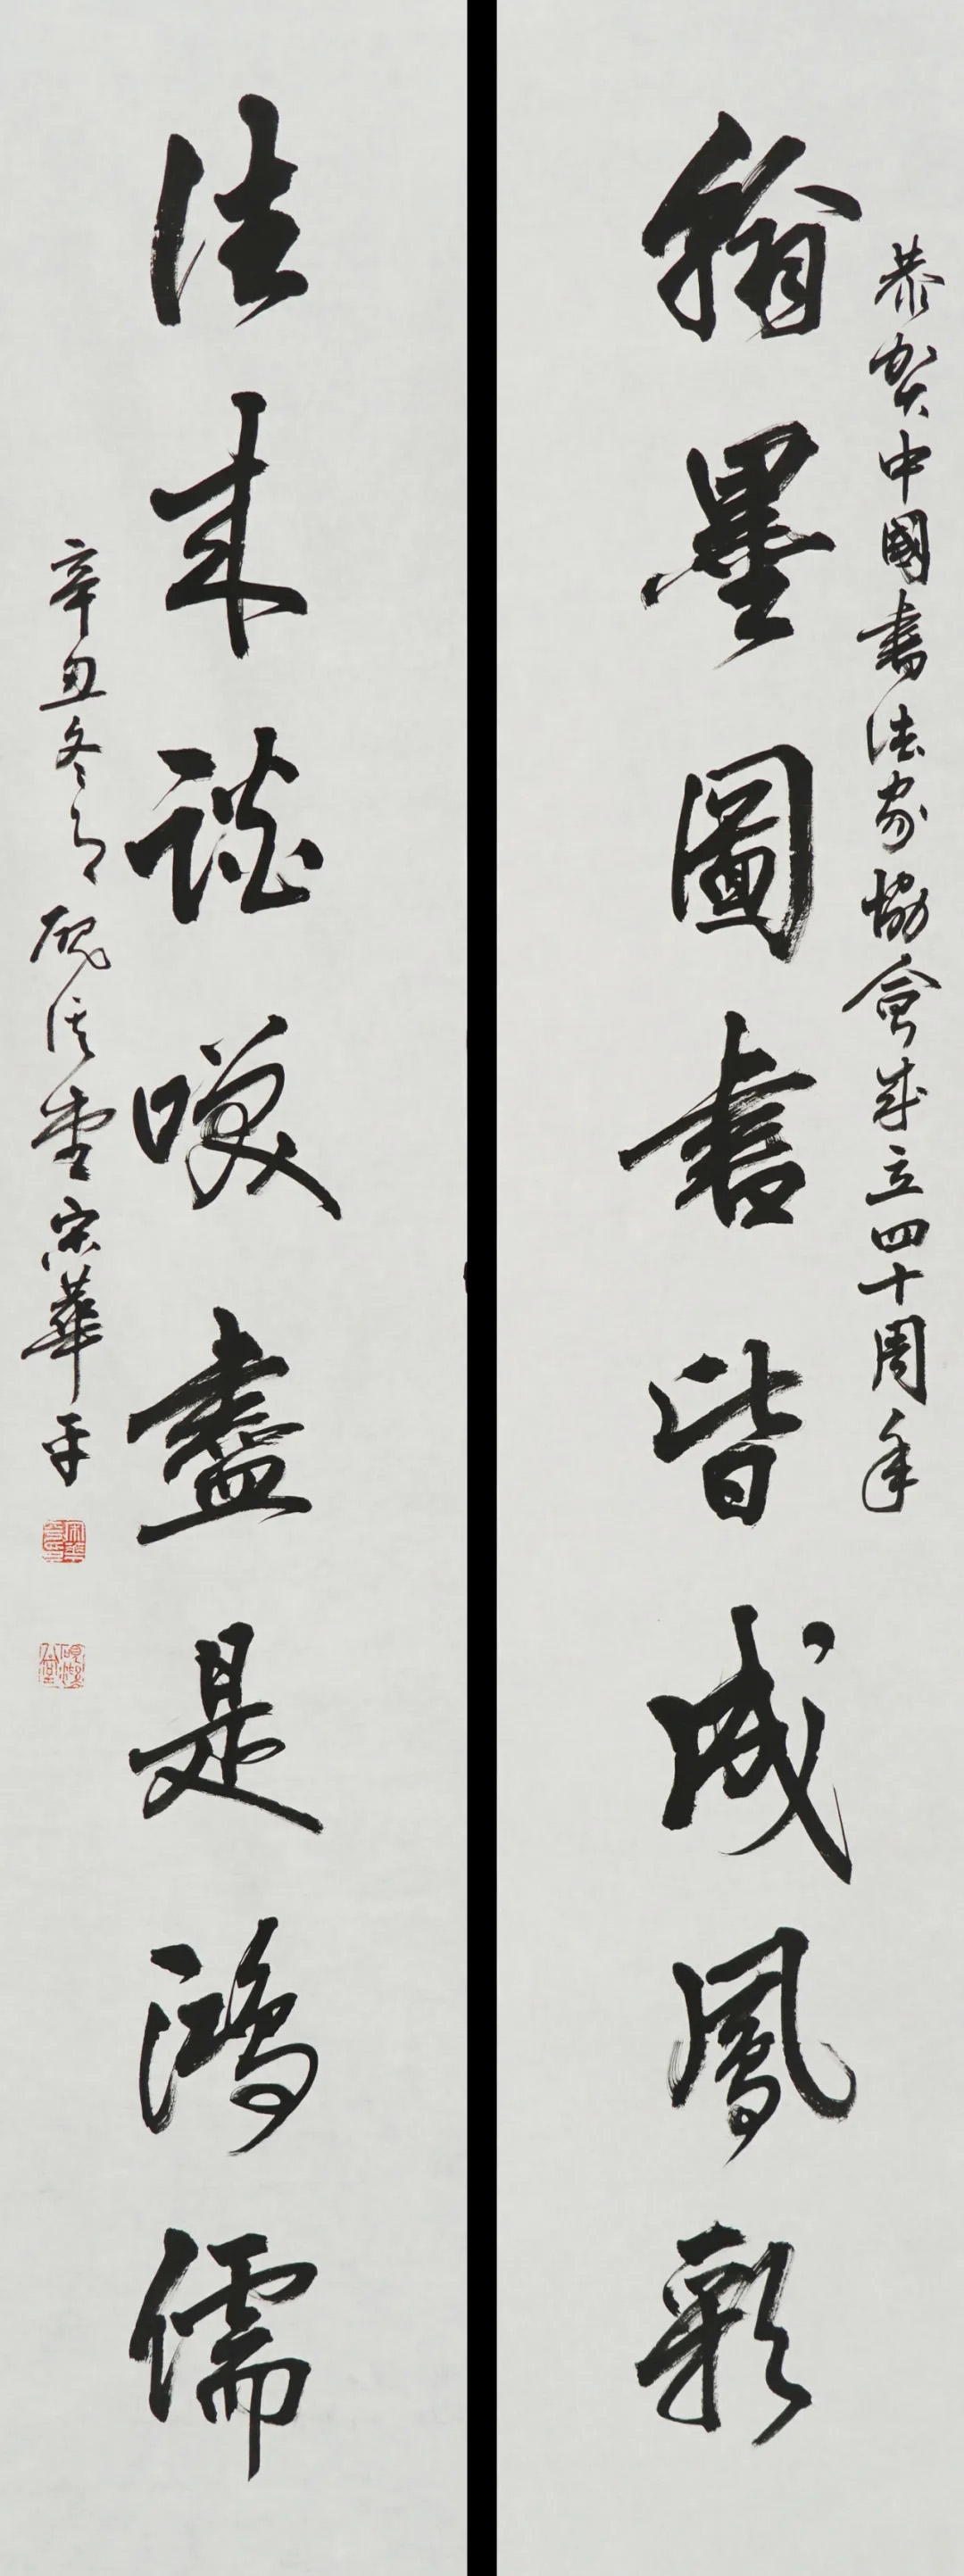 恭賀中國書法家協會成立四十周年
翰墨圖書皆成鳳彩
往來談咲盡是鴻儒
辛丑冬月硯溪堂宋華平